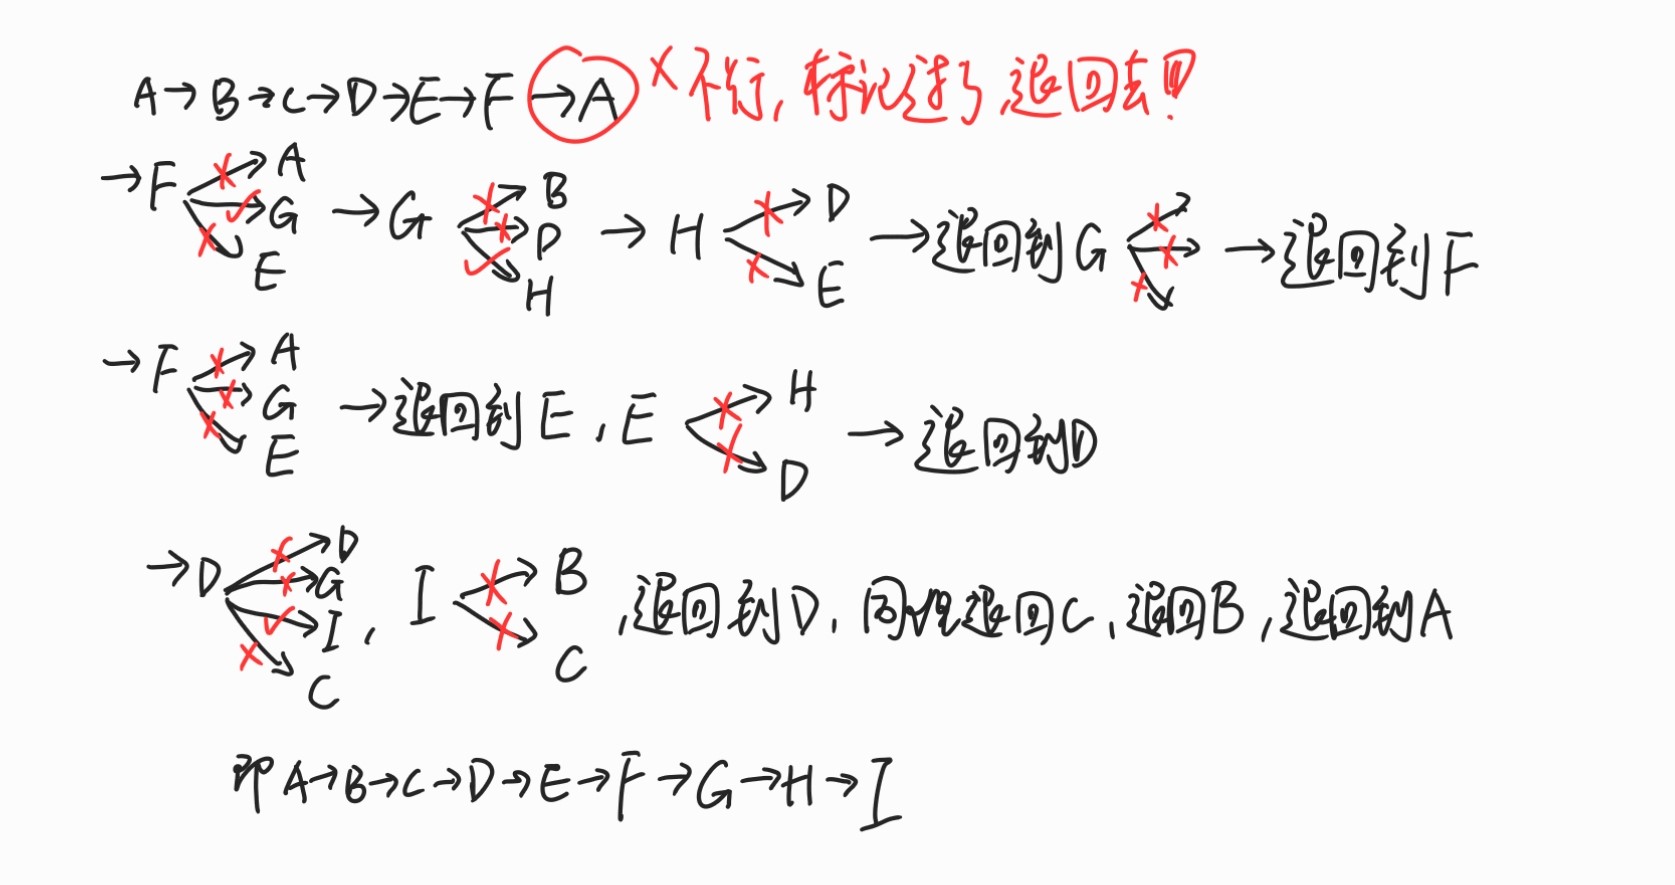 A→B→C→D→E→F→A ×不行,标记过了,退回去!!
→F A G E →G B D H →H D E →退回到G →退回到F
→F A G E →退回到E,E H D →退回到D
→D D G I C , I B C ,退回到D,同理退回C,退回B,退回到A
即A→B→C→D→E→F→G→H→I